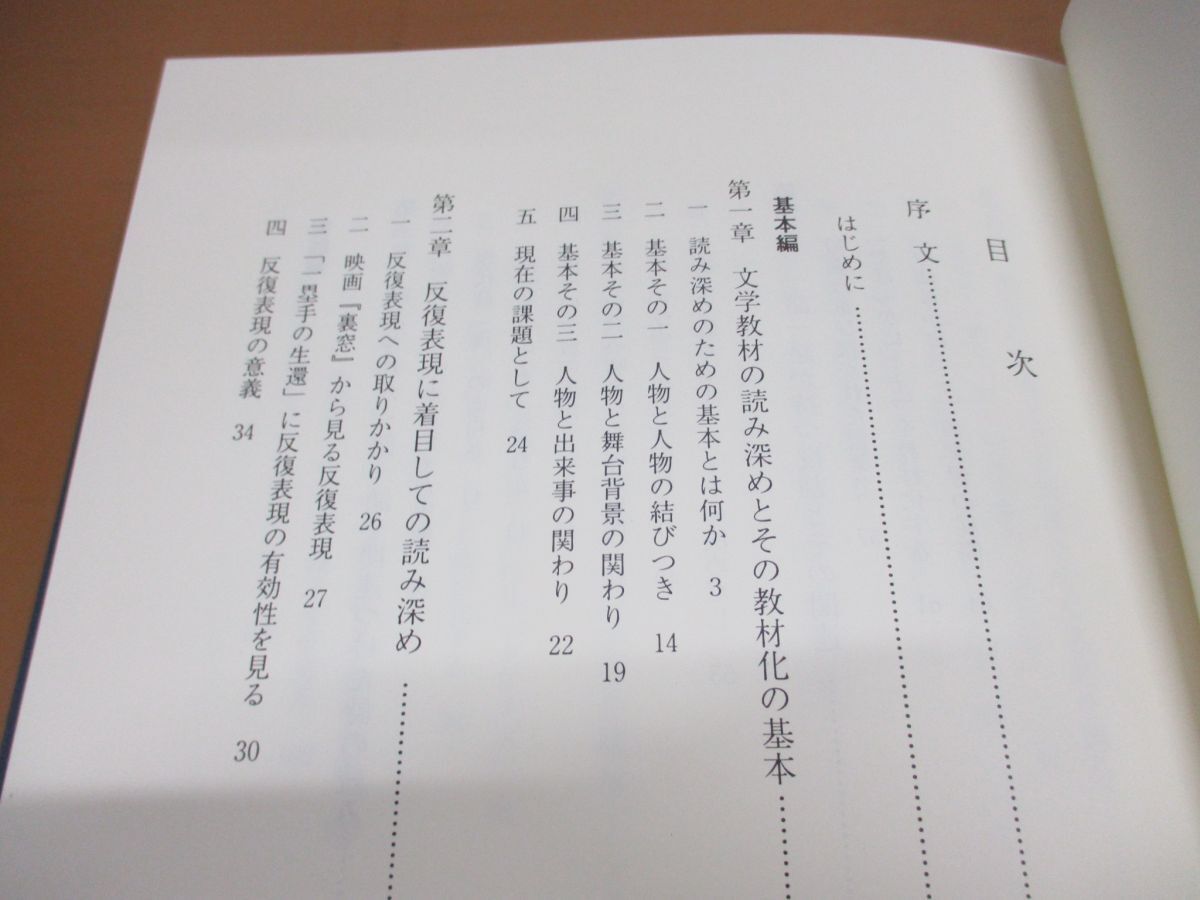 目次
序文
はじめに
基本編
第一章 文学教材の読み深めとその教材化の基本
一 読み深めのための基本とは何か 3
二 基本その一 人物と人物の結びつき 14
三 基本その二 人物と舞台背景の関わり 19
四 基本その三 人物と出来事の関わり 22
五 現在の課題として 24
第二章 反復表現に着目しての読み深め
一 反復表現への取りかかり 26
二 映画『裏窓』から見る反復表現 27
三 「一塁手の生還」に反復表現の有効性を見る 30
四 反復表現の意義 34